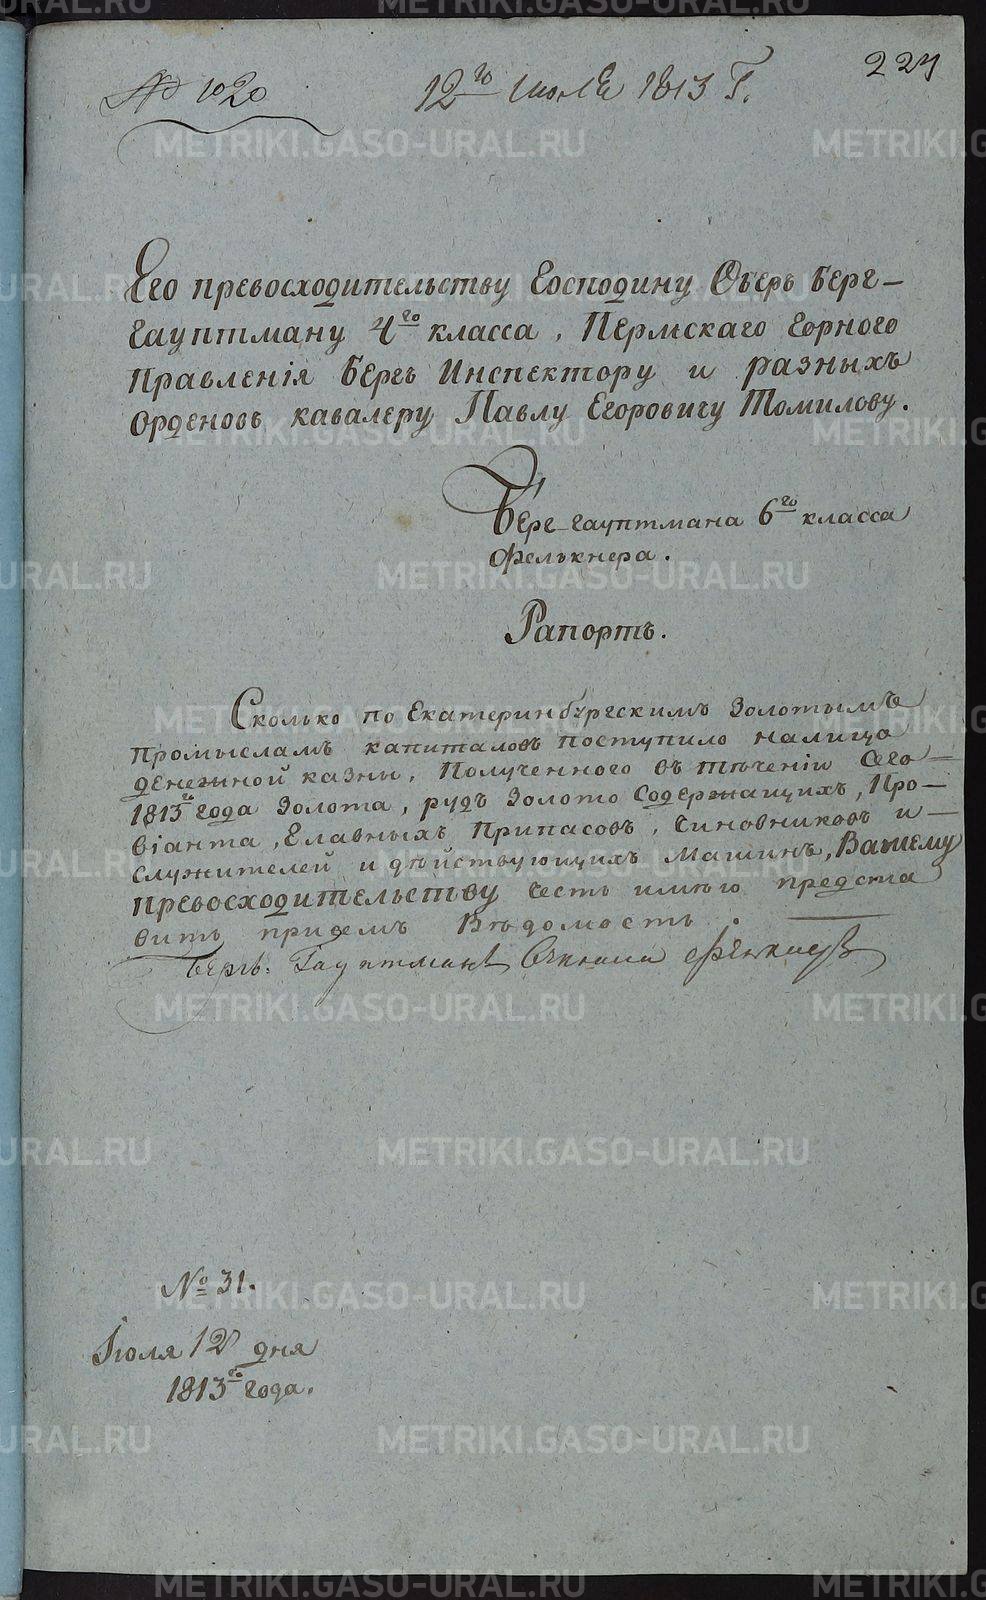 227
№ 1020
12го июля 1813 Г.
Его превосходительству Господину Оберъ Берг-
гауптману 4го класса, Пермскаго горного
Правленія Бергъ Инспектору и разныхъ
Орденовъ кавалеру Павлу Егоровичу Томилову.
Берг-гауптмана 6го класса
Фелькнера.
Рапортъ.
Сколько по Екатеринбургскимъ Золотымъ
Промысламъ капиталовъ поступило налицо
денежной казны, Полученного въ теченіи сего
1813го года Золота, рудъ Золото Содержащихъ, Про-
віанта, Главныхъ Припасовъ, Чиновниковъ и
Служителей и дѣйствующихъ Машинъ, Вашему
Превосходительству честь имѣю предста
вить присемъ Вѣдомость.
Бергъ. Гауптманъ Фелькнеръ
№ 31.
Іюля 12 дня
1813го года.
METRIKI.GASO-URAL.RU